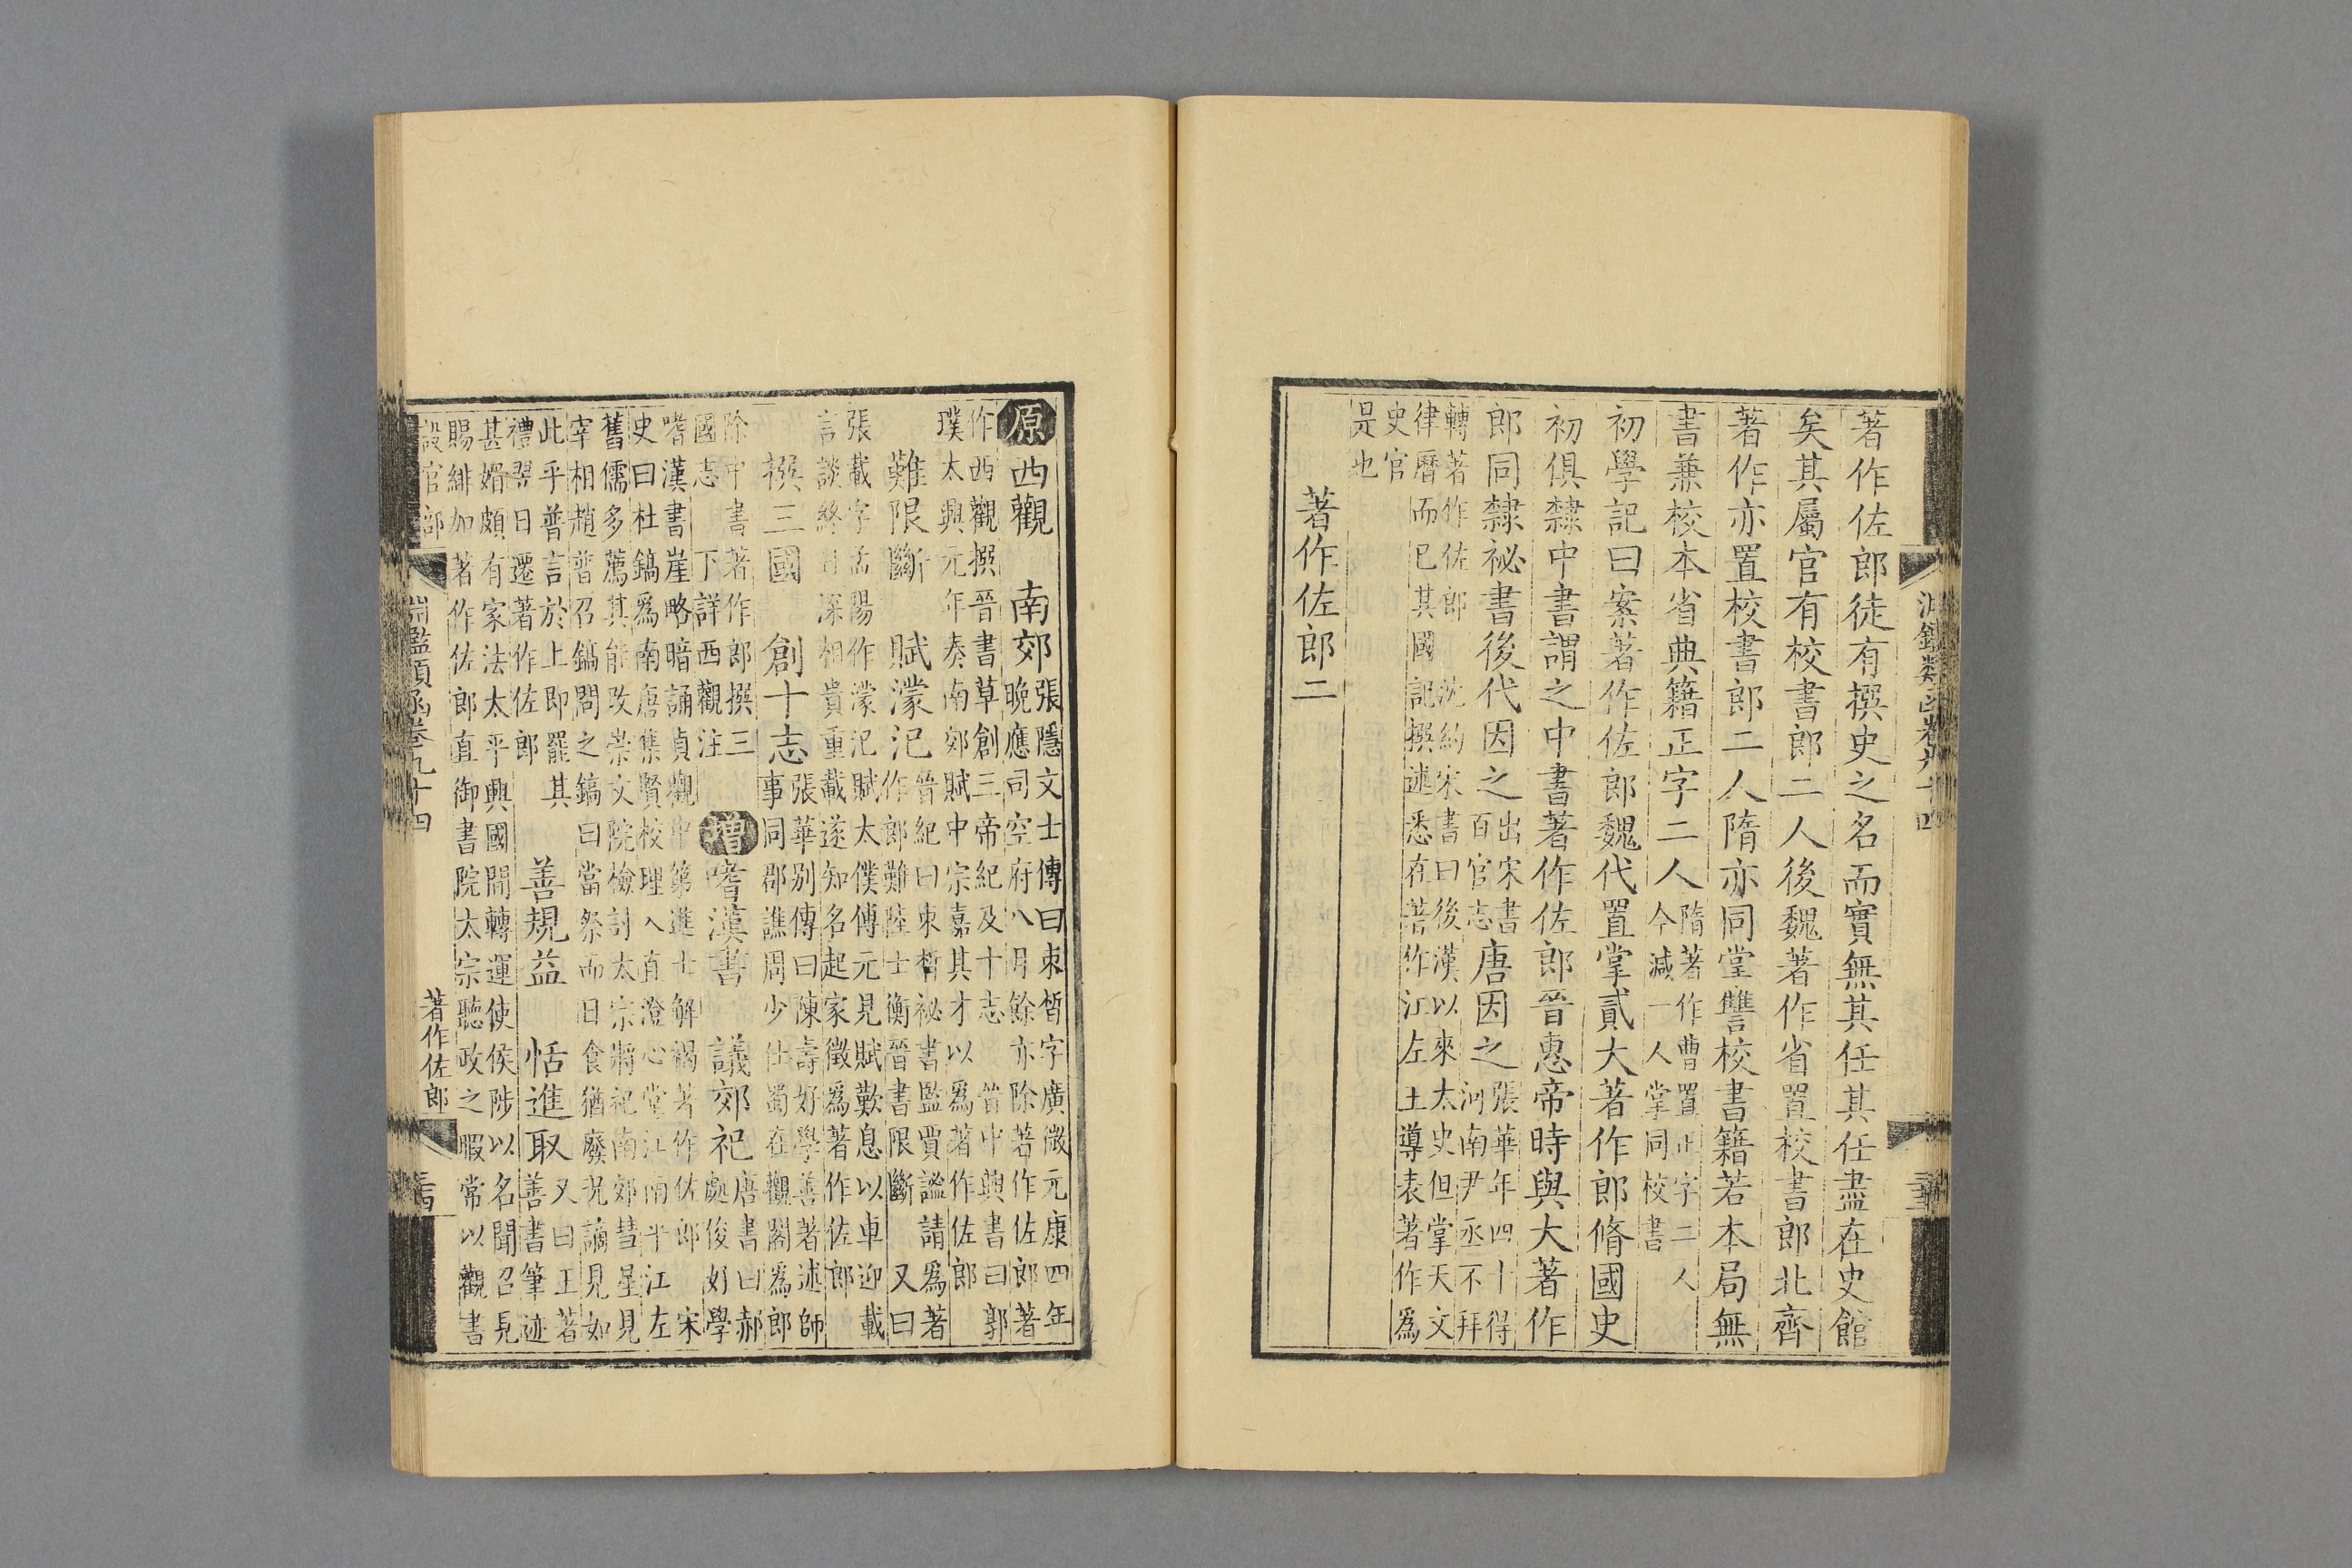 著作佐郎徒有撰史之名而實無其任其任盡在史館
矣其屬官有校書郎二人後魏著作省置校書郎北齊
著作亦置校書郎二人隋亦同堂讐校書籍若本局無
書兼校本省典籍正字二人隋著作曹置正字二人今減一人掌同校書
初學記曰案著作佐郎魏代置掌貳大著作郎脩國史
初俱隸中書謂之中書著作佐郎晉惠帝時與大著作
郎同隸祕書後代因之出宋書百官志唐因之張華年四十得河南尹丞不拜
轉著作佐郎 沈約宋書曰後漢以來太史但掌天文
律曆而已其國記撰述悉在著作江左王導表著作爲
史官
是也
著作佐郎二
原西觀 南郊張隱文士傳曰束皙字廣微元康四年
晚應司空府八月餘亦除著作佐郎著
作西觀撰晉書草創三帝紀及十志 晉中興書曰郭
璞太興元年奏南郊賦中宗嘉其才以爲著作佐郎
難限斷 賦濛汜晉紀曰束皙祕書監賈謐請爲著
作郎難陸士衡晉書限斷 又曰
張載字孟陽作濛汜賦太僕傅元見賦歎息以車迎載
言談終日深相貴重載遂知名起家徵爲著作佐郎
撰三國 創十志張華別傳曰陳壽好學善著述師
事同郡譙周少仕蜀在觀閣爲郎
除中書著作郎撰三
國志 下詳西觀注 增嗜漢書 議郊祀唐書曰郝
處俊好學
嗜漢書崖略暗誦貞觀中第進士解褐著作佐郎 宋
史曰杜鎬爲南唐集賢校理入直澄心堂江南平江左
舊儒多薦其能改崇文院檢討太宗將祀南郊彗星見
宰相趙普召鎬問之鎬曰當祭而日食猶廢況謫見如
此乎普言於上即罷其
禮翌日遷著作佐郎 善規益 恬進取又曰王著
善書筆迹
甚媚頗有家法太平興國間轉運使侯陟以名聞召見
賜緋加著作佐郎直御書院太宗聽政之暇常以觀書
淵鑑類函卷九十四
著作佐郎